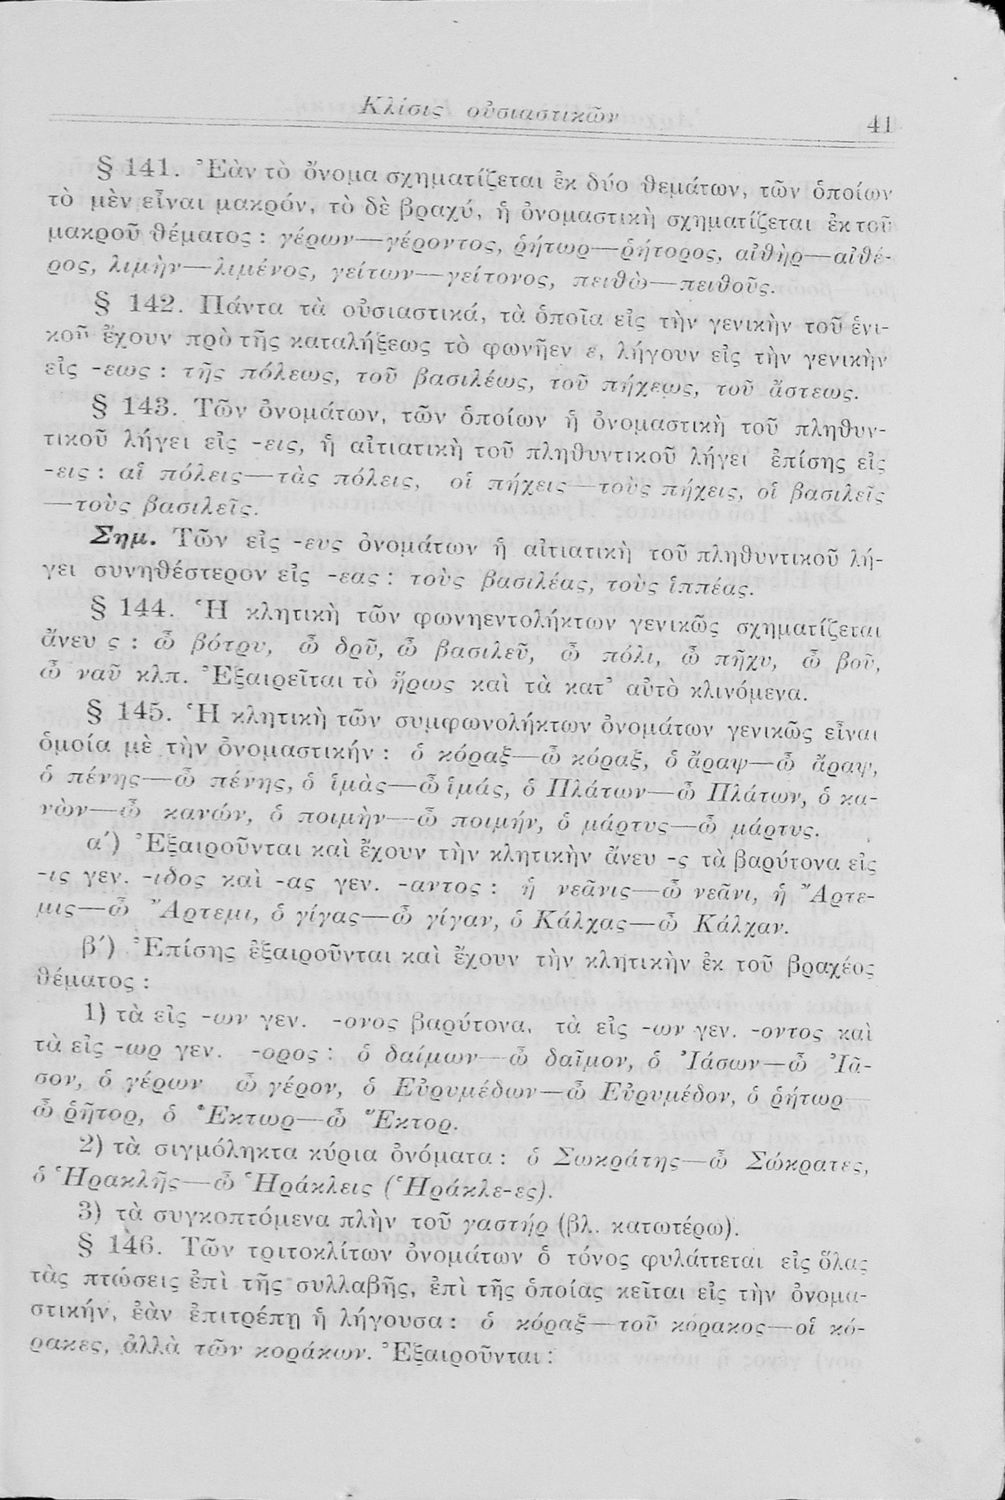 Κλίσις οὐσιαστικῶν 41
§ 141. Ἐὰν τὸ ὄνομα σχηματίζεται ἐκ δύο θεμάτων, τῶν ὁποίων
τὸ μὲν εἶναι μακρόν, τὸ δὲ βραχύ, ἡ ὀνομαστικὴ σχηματίζεται ἐκ τοῦ
μακροῦ θέματος : γέρων—γέροντος, ῥήτωρ—ῥήτορος, αἰθὴρ—αἰθέ-
ρος, λιμὴν—λιμένος, γείτων—γείτονος, πειθὼ—πειθοῦς.
§ 142. Πάντα τὰ οὐσιαστικά, τὰ ὁποῖα εἰς τὴν γενικὴν τοῦ ἑνι-
κοῦ ἔχουν πρὸ τῆς καταλήξεως τὸ φωνῆεν ε, λήγουν εἰς τὴν γενικὴν
εἰς -εως : τῆς πόλεως, τοῦ βασιλέως, τοῦ πήχεως, τοῦ ἄστεως.
§ 143. Τῶν ὀνομάτων, τῶν ὁποίων ἡ ὀνομαστικὴ τοῦ πληθυν-
τικοῦ λήγει εἰς -εις, ἡ αἰτιατικὴ τοῦ πληθυντικοῦ λήγει ἐπίσης εἰς
-εις : αἱ πόλεις—τὰς πόλεις, οἱ πήχεις—τοὺς πήχεις, οἱ βασιλεῖς
—τοὺς βασιλεῖς.
Σημ. Τῶν εἰς -ευς ὀνομάτων ἡ αἰτιατικὴ τοῦ πληθυντικοῦ λή-
γει συνηθέστερον εἰς -εας : τοὺς βασιλέας, τοὺς ἱππέας.
§ 144. Ἡ κλητικὴ τῶν φωνηεντολήκτων γενικῶς σχηματίζεται
ἄνευ ς : ὦ βότρυ, ὦ δρῦ, ὦ βασιλεῦ, ὦ πόλι, ὦ πῆχυ, ὦ βοῦ,
ὦ ναῦ κλπ. Ἐξαιρεῖται τὸ ἥρως καὶ τὰ κατ’ αὐτὸ κλινόμενα.
§ 145. Ἡ κλητικὴ τῶν συμφωνολήκτων ὀνομάτων γενικῶς εἶναι
ὁμοία μὲ τὴν ὀνομαστικήν : ὁ κόραξ—ὦ κόραξ, ὁ ἄραψ—ὦ ἄραψ,
ὁ πένης—ὦ πένης, ὁ ἱμὰς—ὦ ἱμάς, ὁ Πλάτων—ὦ Πλάτων, ὁ κα-
νὼν—ὦ κανών, ὁ ποιμὴν—ὦ ποιμήν, ὁ μάρτυς—ὦ μάρτυς.
α΄) Ἐξαιροῦνται καὶ ἔχουν τὴν κλητικὴν ἄνευ -ς τὰ βαρύτονα εἰς
-ις γεν. -ιδος καὶ -ας γεν. -αντος : ἡ νεᾶνις—ὦ νεᾶνι, ἡ Ἄρτε-
μις—ὦ Ἄρτεμι, ὁ γίγας—ὦ γίγαν, ὁ Κάλχας—ὦ Κάλχαν.
β΄) Ἐπίσης ἐξαιροῦνται καὶ ἔχουν τὴν κλητικὴν ἐκ τοῦ βραχέος
θέματος :
1) τὰ εἰς -ων γεν. -ονος βαρύτονα, τὰ εἰς -ων γεν. -οντος καὶ
τὰ εἰς -ωρ γεν. -ορος : ὁ δαίμων—ὦ δαῖμον, ὁ Ἰάσων—ὦ Ἰᾶ-
σον, ὁ γέρων ὦ γέρον, ὁ Εὐρυμέδων—ὦ Εὐρυμέδον, ὁ ῥήτωρ—
ὦ ῥῆτορ, ὁ Ἕκτωρ—ὦ Ἕκτορ.
2) τὰ σιγμόληκτα κύρια ὀνόματα : ὁ Σωκράτης—ὦ Σώκρατες,
ὁ Ἡρακλῆς—ὦ Ἡράκλεις (Ἡράκλε-ες).
3) τὰ συγκοπτόμενα πλὴν τοῦ γαστήρ (βλ. κατωτέρω).
§ 146. Τῶν τριτοκλίτων ὀνομάτων ὁ τόνος φυλάττεται εἰς ὅλας
τὰς πτώσεις ἐπὶ τῆς συλλαβῆς, ἐπὶ τῆς ὁποίας κεῖται εἰς τὴν ὀνομα-
στικήν, ἐὰν ἐπιτρέπῃ ἡ λήγουσα : ὁ κόραξ—τοῦ κόρακος—οἱ κό-
ρακες, ἀλλὰ τῶν κοράκων. Ἐξαιροῦνται :